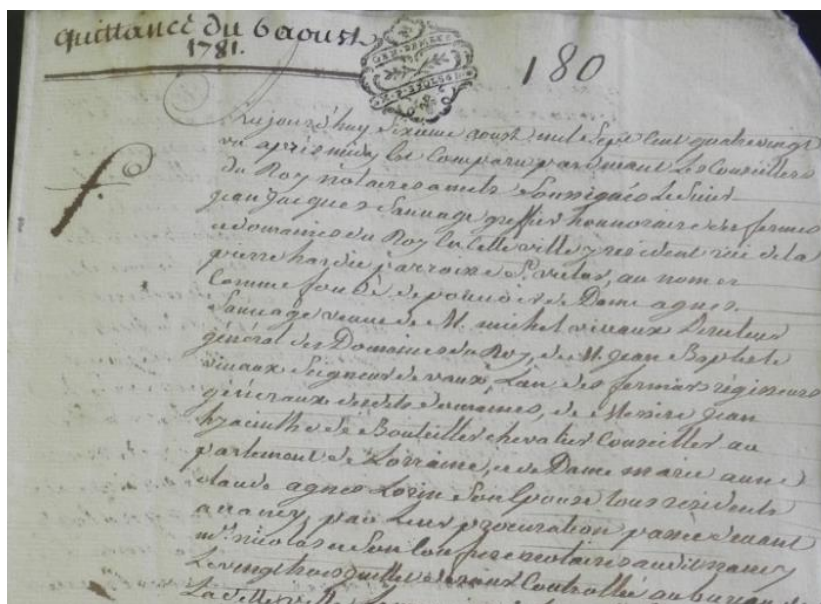 quittance du 6 aoust
1781.
180
Aujourd'huy Sixieme aoust mil Sept Cent quatrevingt
un après midy Est Comparu pardevant Les Conseillers
du Roy notaires a metz Soussignés Le Sieur
Jean Jacques Sauvage greffier honnoraire des fermes
et domaines du Roy En Cette ville y resident rüe de la
pierre hardie parroisse St. victor, au nom et
Comme fondé de pouvoir de Dame agnes
Sauvage veuve de M. michel vivaux Directeur
général des Domaines du Roy, de M. Jean Baptiste
vivaux Seigneur de vaux, L'un des fermiers régisseurs
généraux desdits domaines, de Messire Jean
hyacinthe de Bouteiller chevalier Conseiller au
parlement de Lorraine, et de Dame marie anne
claude agnes Lorin Son Epouse tous residents
a nancy, par Leur procuration passée devant
me. nicolas et Son Confrere notaires audit nancy
Le vingt trois Juillet dernier Controllée au bureau de
La ditte ville